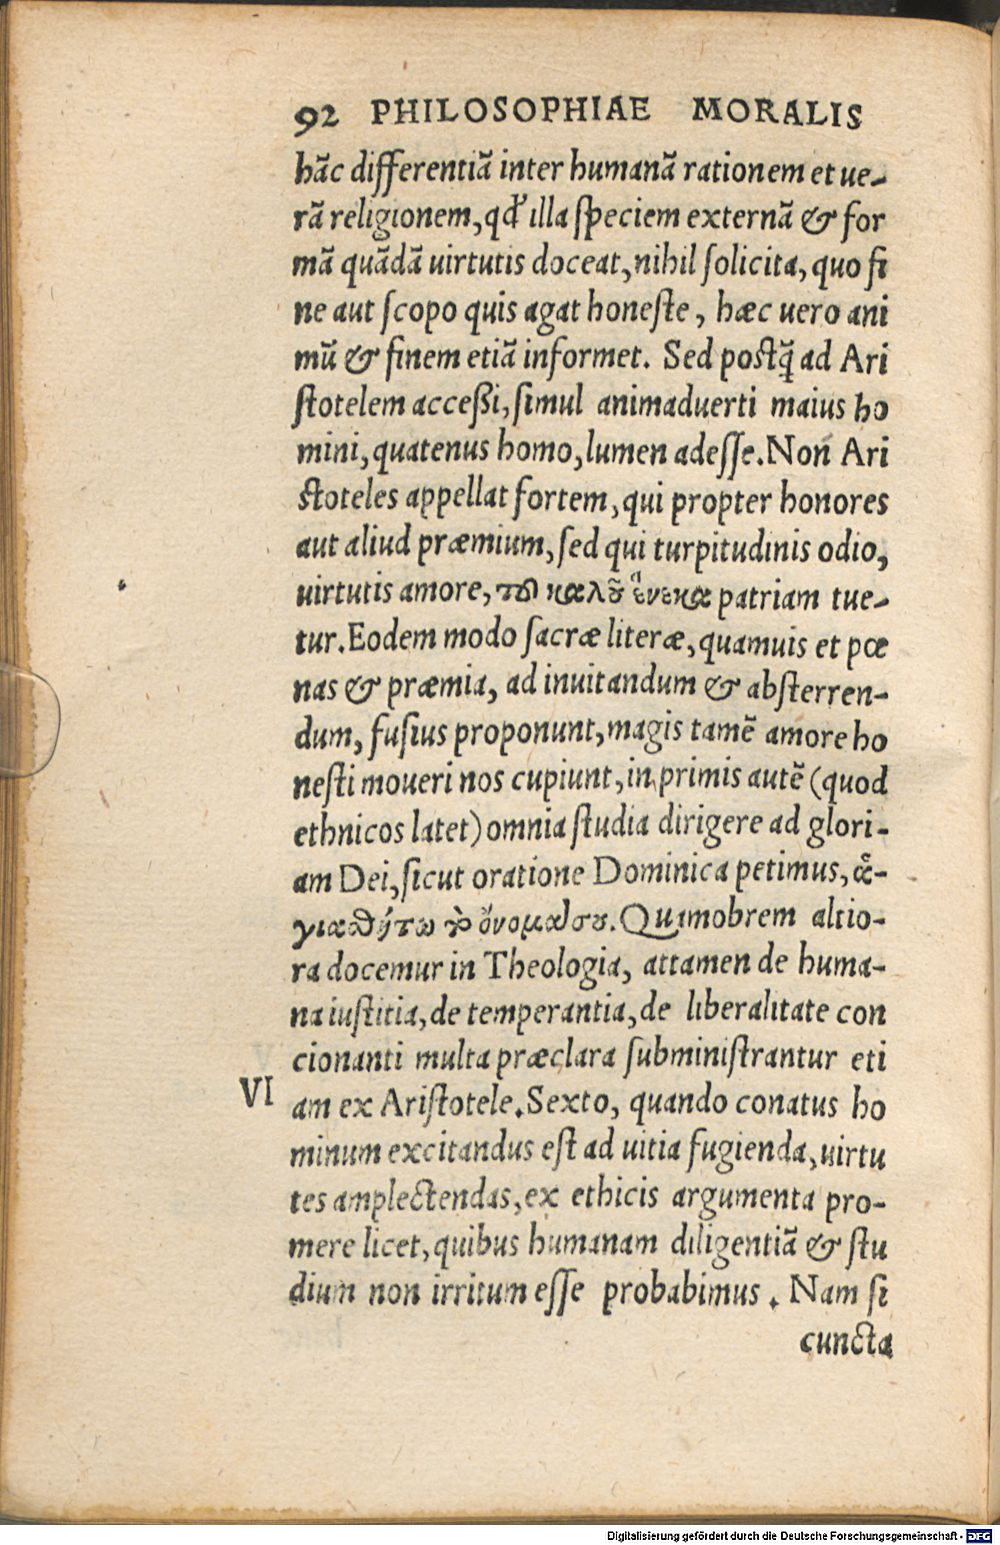 92 PHILOSOPHIAE MORALIS
hãc differentiã inter humanã rationem et ue-
rã religionem, qđ illa speciem externã & for
mã quãdã uirtutis doceat, nihil solicita, quo fi
ne aut scopo quis agat honeste, hæc uero ani
mũ & finem etiã informet. Sed postq̃ ad Ari
stotelem acceßi, simul animaduerti maius ho
mini, quatenus homo, lumen adesse. Non Ari
stoteles appellat fortem, qui propter honores
aut aliud præmium, sed qui turpitudinis odio,
uirtutis amore, τȣ καλȣ̃ ἕνεκα patriam tue-
tur. Eodem modo sacræ literæ, quamuis et pœ
nas & præmia, ad inuitandum & absterren-
dum, fusius proponunt, magis tamẽ amore ho
nesti moueri nos cupiunt, in primis autẽ (quod
ethnicos latet) omnia studia dirigere ad glori-
am Dei, sicut oratione Dominica petimus, ἁ-
γιαθήτω τὸ ὄνομα σου. Quamobrem altio-
ra docemur in Theologia, attamen de huma-
na iustitia, de temperantia, de liberalitate con
cionanti multa præclara subministrantur eti
VI am ex Aristotele. Sexto, quando conatus ho
minum excitandus est ad uitia fugienda, uirtu
tes amplectendas, ex ethicis argumenta pro-
mere licet, quibus humanam diligentiã & stu
dium non irritum esse probabimus. Nam si
cuncta
Digitalisierung gefördert durch die Deutsche Forschungsgemeinschaft - DFG